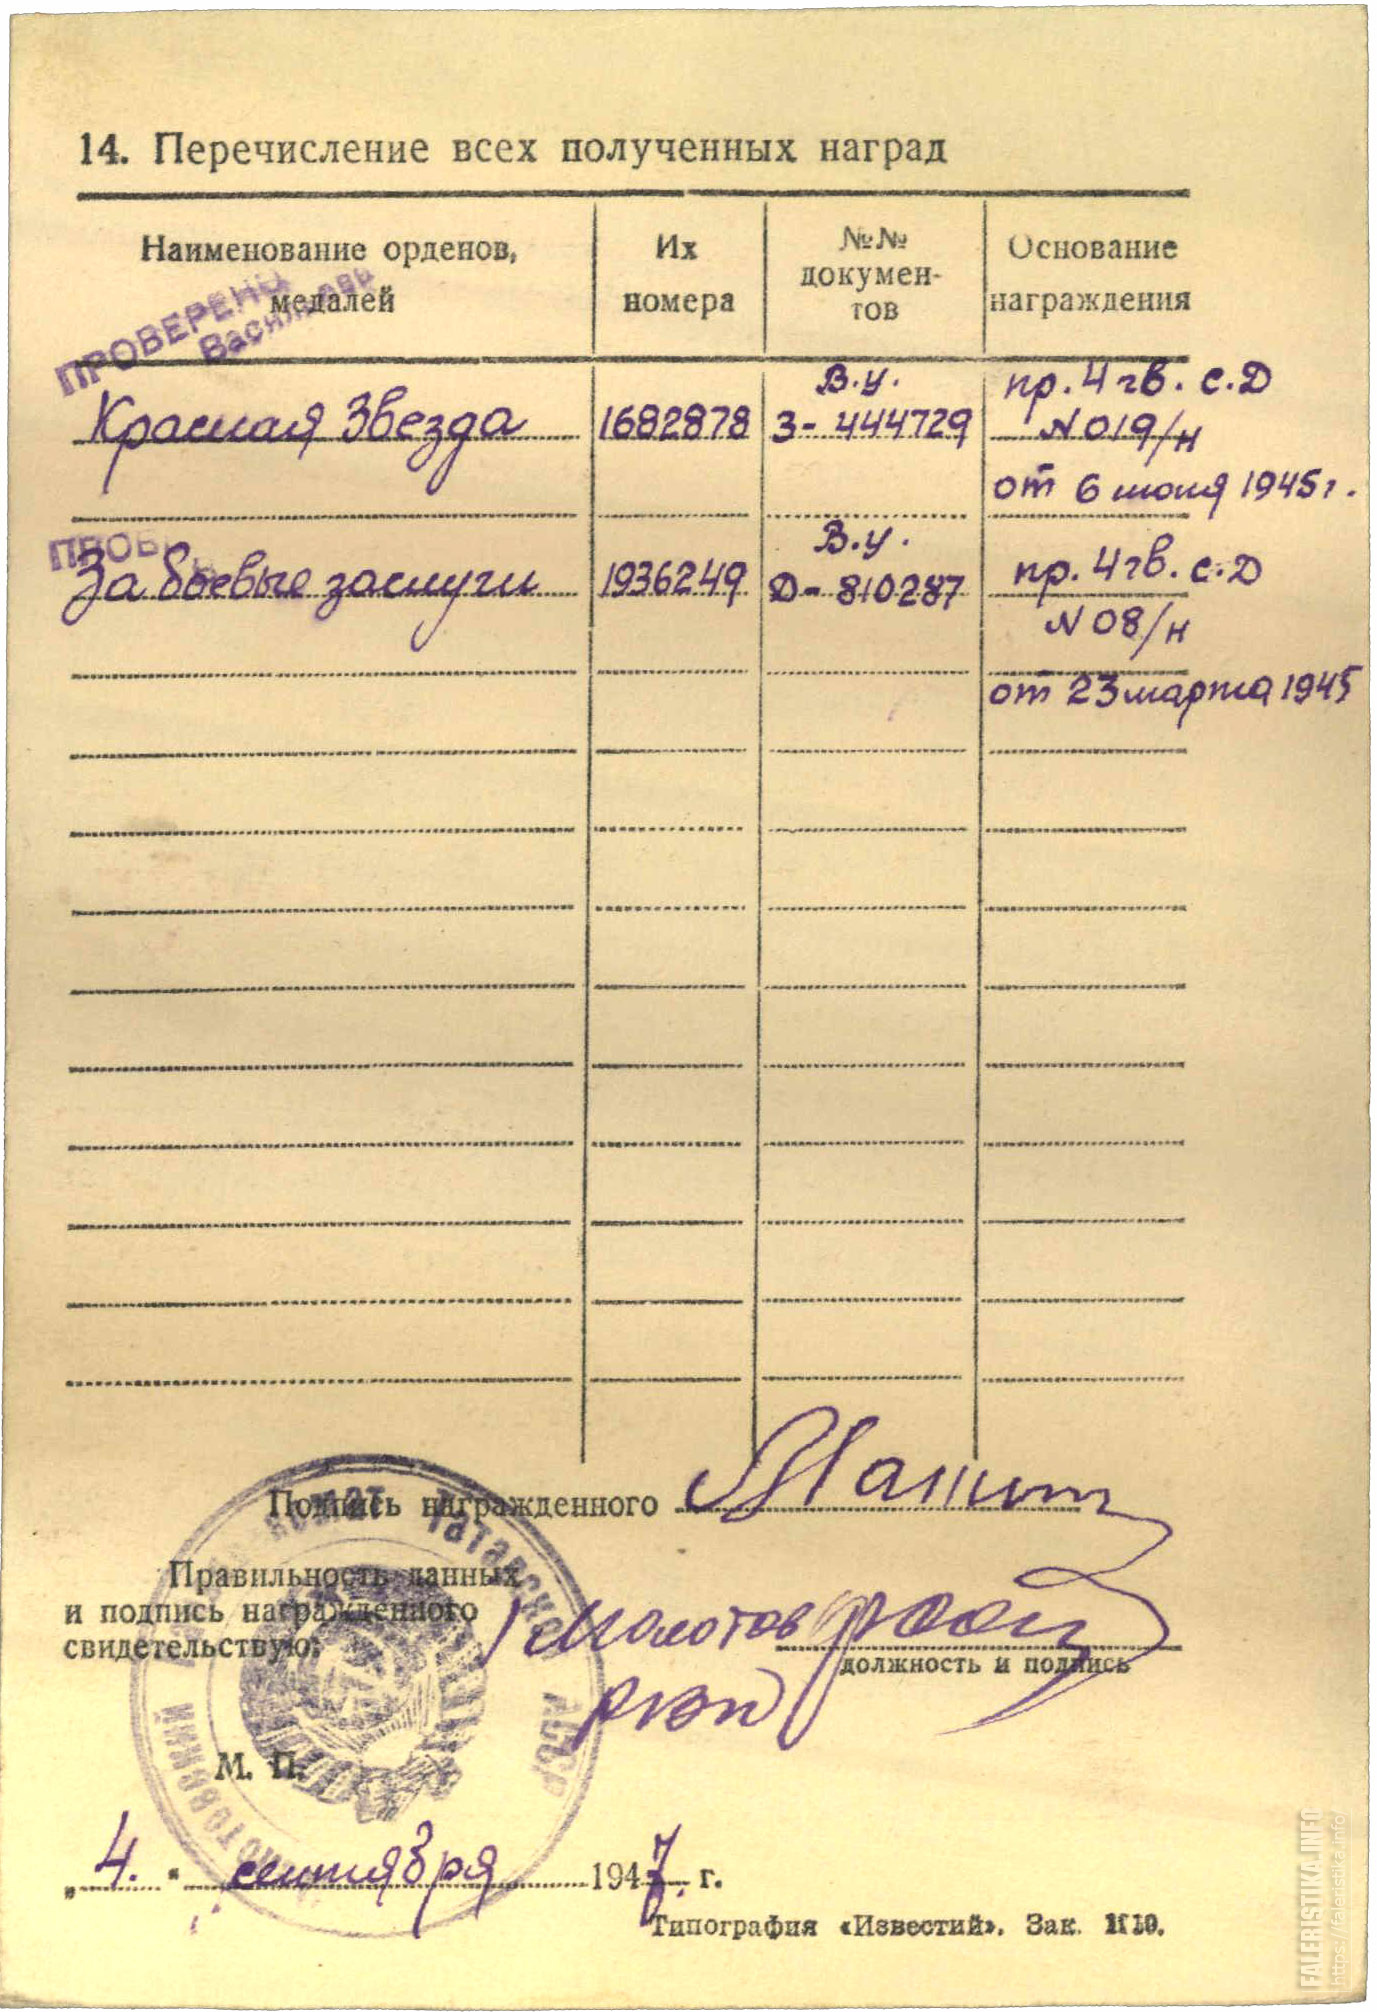 14. Перечисление всех полученных наград
Наименование орденов, медалей
Их номера
№№ докумен-тов
Основание награждения
ПРОВЕРЕНО
Красная Звезда 1682878 В.у. З-444729 пр. 4 гв. с.Д
N 019/н
от 6 июня 1945 г.
ПРОВЕ
За боевые заслуги 1936249 В.у. Д-810287 пр. 4 гв. с.Д
N 08/н
от 23 марта 1945
Подпись награжденного
Правильность данных
и подпись награжденного
свидетельствую:
Молотов
должность и подпись
Татарской АССР
М. П.
„4." сентября 1947 г.
Типография «Известий». Зак. 1110.
FALERISTIKA.INFO
https://faleristika.info/